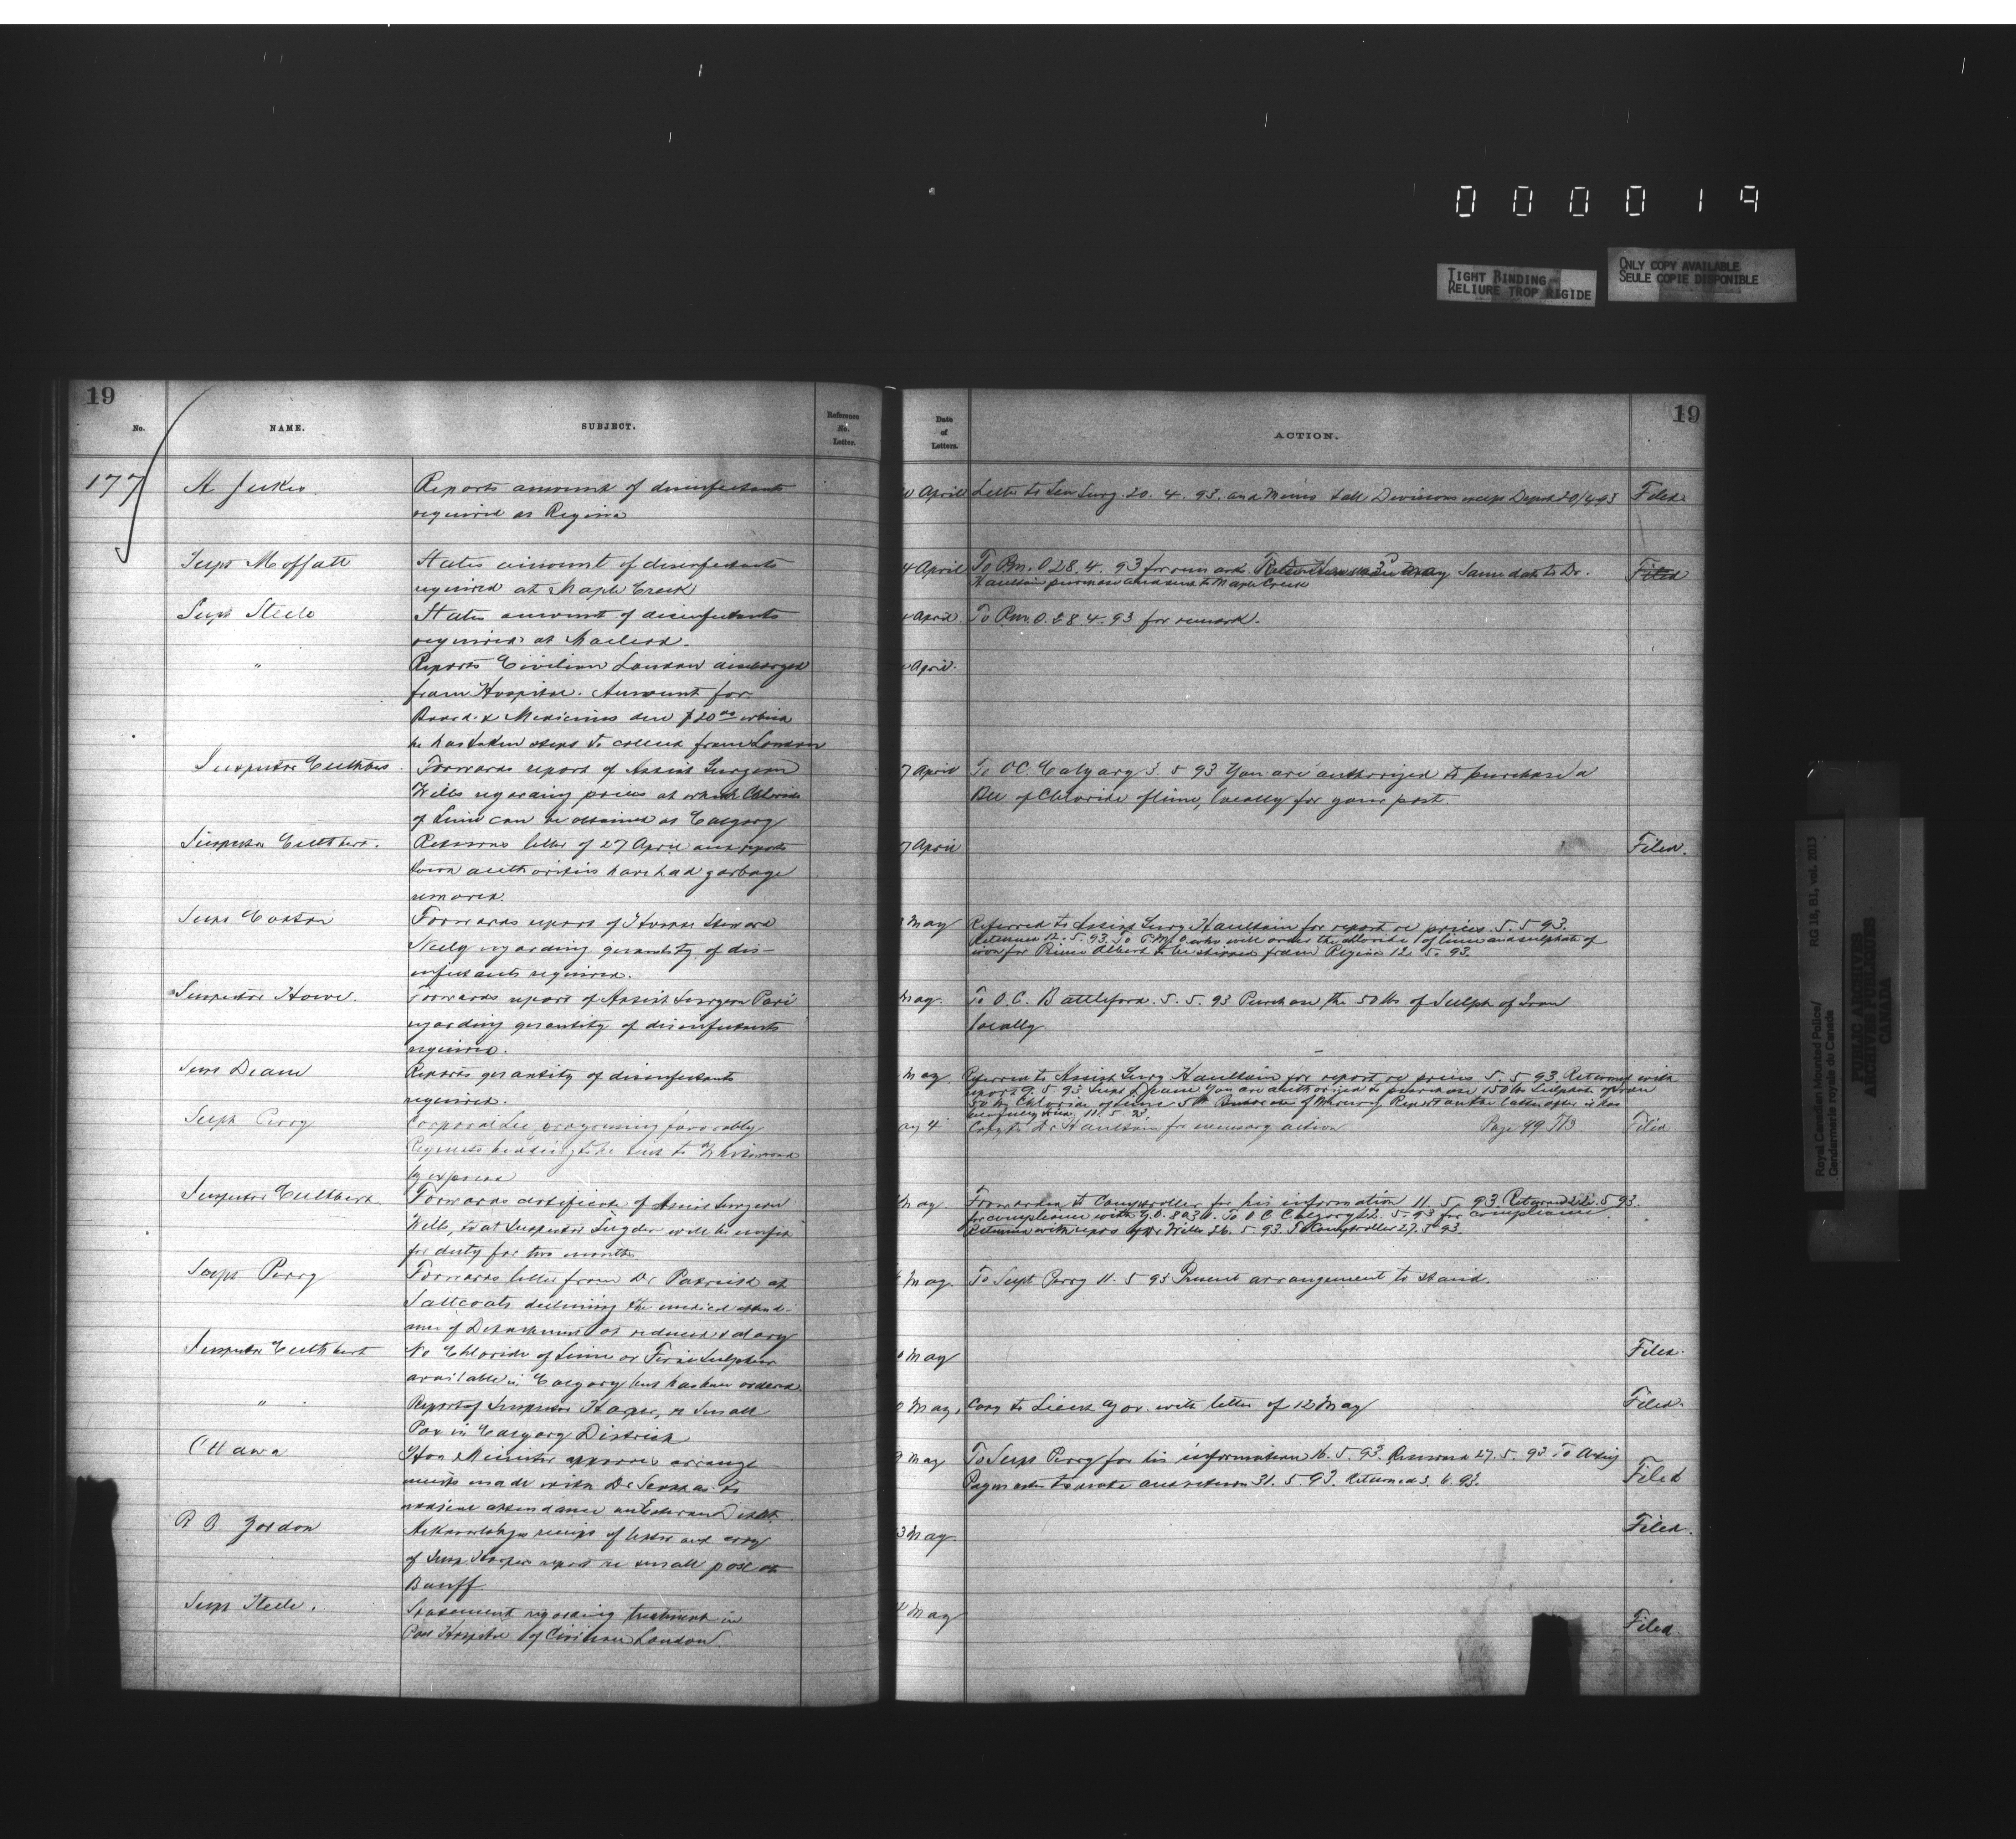 000019
TIGHT BINDING
RELIURE TROP RIGIDE
ONLY COPY AVAILABLE
SEULE COPIE DISPONIBLE
19
No.
NAME.
SUBJECT.
Reference
No.
Letter.
177
A Jukes
Reports amount of disinfectants
required at Regina
Supt Moffatt
States amount of disinfectants
required at Maple Creek
Supt Steele
States amount of disinfectants
required at Macleod.
"
Reports Civilian London discharged
from Hospital. Amount for
Board & Medicines due $20.00 which
he has taken steps to collect from London
Inspector Cuthbert
Forwards report of Assist Surgeon
Wills regarding prices at which Chloride
of Lime can be obtained at Calgary
Inspector Cuthbert.
Returns letter of 27 April and reports
town authorities have had garbage
removed.
Supt Cotton
Forwards report of Hospital Steward
regarding quantity of dis-
infectants required.
Inspector Howe.
Forwards report of Assist Surgeon Paré
regarding quantity of disinfectants
required.
Supt Deane
Reports quantity of disinfectants
required.
Supt Perry
Corporal Lee progressing favorably
Requests bedding to be sent to Whitewood
by express
Inspector Cuthbert
Forwards certificate of Assist Surgeon
Wills, that Inspector Snyder will be unfit
for duty for two months
Supt Perry
Forwards letter from Dr Patrick at
Saltcoats declining the medical attend-
ance of Detachment at reduced salary
Inspector Cuthbert
No Chloride of Lime or Ferri Sulphur
available in Calgary but has been ordered.
"
Report of Inspector Harper, re Small
Pox in Calgary District
Ottawa
Hon Minister approves arrange-
ments made with Dr as to
medical attendance on Eastern Distt.
R B Gordon
Acknowledges receipt of letter and copy
of Insp Harpers report re small pox at
Banff
Supt Steele.
Statement regarding treatment in
Post Hospital of Civilian London.
19
Date
of
Letters.
ACTION.
April
Letter to Sen Surg. 20. 4. 93. and Memo to all Divisions except Depot 20/4/93
Filed.
4 April
To Pm. O 28. 4. 93 for remark. May Same date to Dr.
Haultain purchased and sent to Maple Creek
Filed
April.
To Pm. O. 28. 4. 93 for remark.
April.
7 April
To OC. Calgary 3. 5 93 You are authorized to purchase a
Bll of Chloride of lime, locally for your post.
7 April
Filed.
May
Referred to Assist Surg Haultain for report re prices. 5. 5 93.
Returned 12. 5. 93. To P.M.O who will order the chloride of lime and sulphate of
iron for Prince Albert to be shipped from Regina 12. 5. 93.
May.
To O. C. Battleford. 5. 5. 93 Purchase the 50 lbs of Sulph of Iron
locally
May.
Referred to Assist Surg Haultain for report re prices 5. 5 93. Returned with
report 9. 5 93 Supt Deane You are authorized to purchase 150 lbs Sulphate of Iron
50 lbs Chloride of Lime 5 lb of Mercury. Report on the latter after it has
11. 5. 93
ay 4
Copy to Dr Haultain for necessary action Page 99 T/3
Filed
May
Forwarded to Comptroller for his information 11. 5. 93 Returned 22. 5 93.
for compliance with G.O. 8030. To O C Calgary 22. 5. 93 for compliance
Returned with report of Dr Wills 26. 5. 93. To Comptroller 27. 5. 93.
May.
To Supt Perry 11. 5 93 Present arrangement to stand.
May
Filed.
May.
Copy to Lieut Gov. with letter of 12 May
Filed.
9 May
To Supt Perry for his information 16. 5. 93. Returned 27. 5. 93 To Acting
Paymaster to note and return 31. 5 93. Returned 3. 6. 93.
Filed
3 May.
Filed.
May
Filed.
Royal Canadian Mounted Police/ RG 18, B1, vol. 2013
Gendarmerie royale du Canada
PUBLIC ARCHIVES
ARCHIVES PUBLIQUES
CANADA